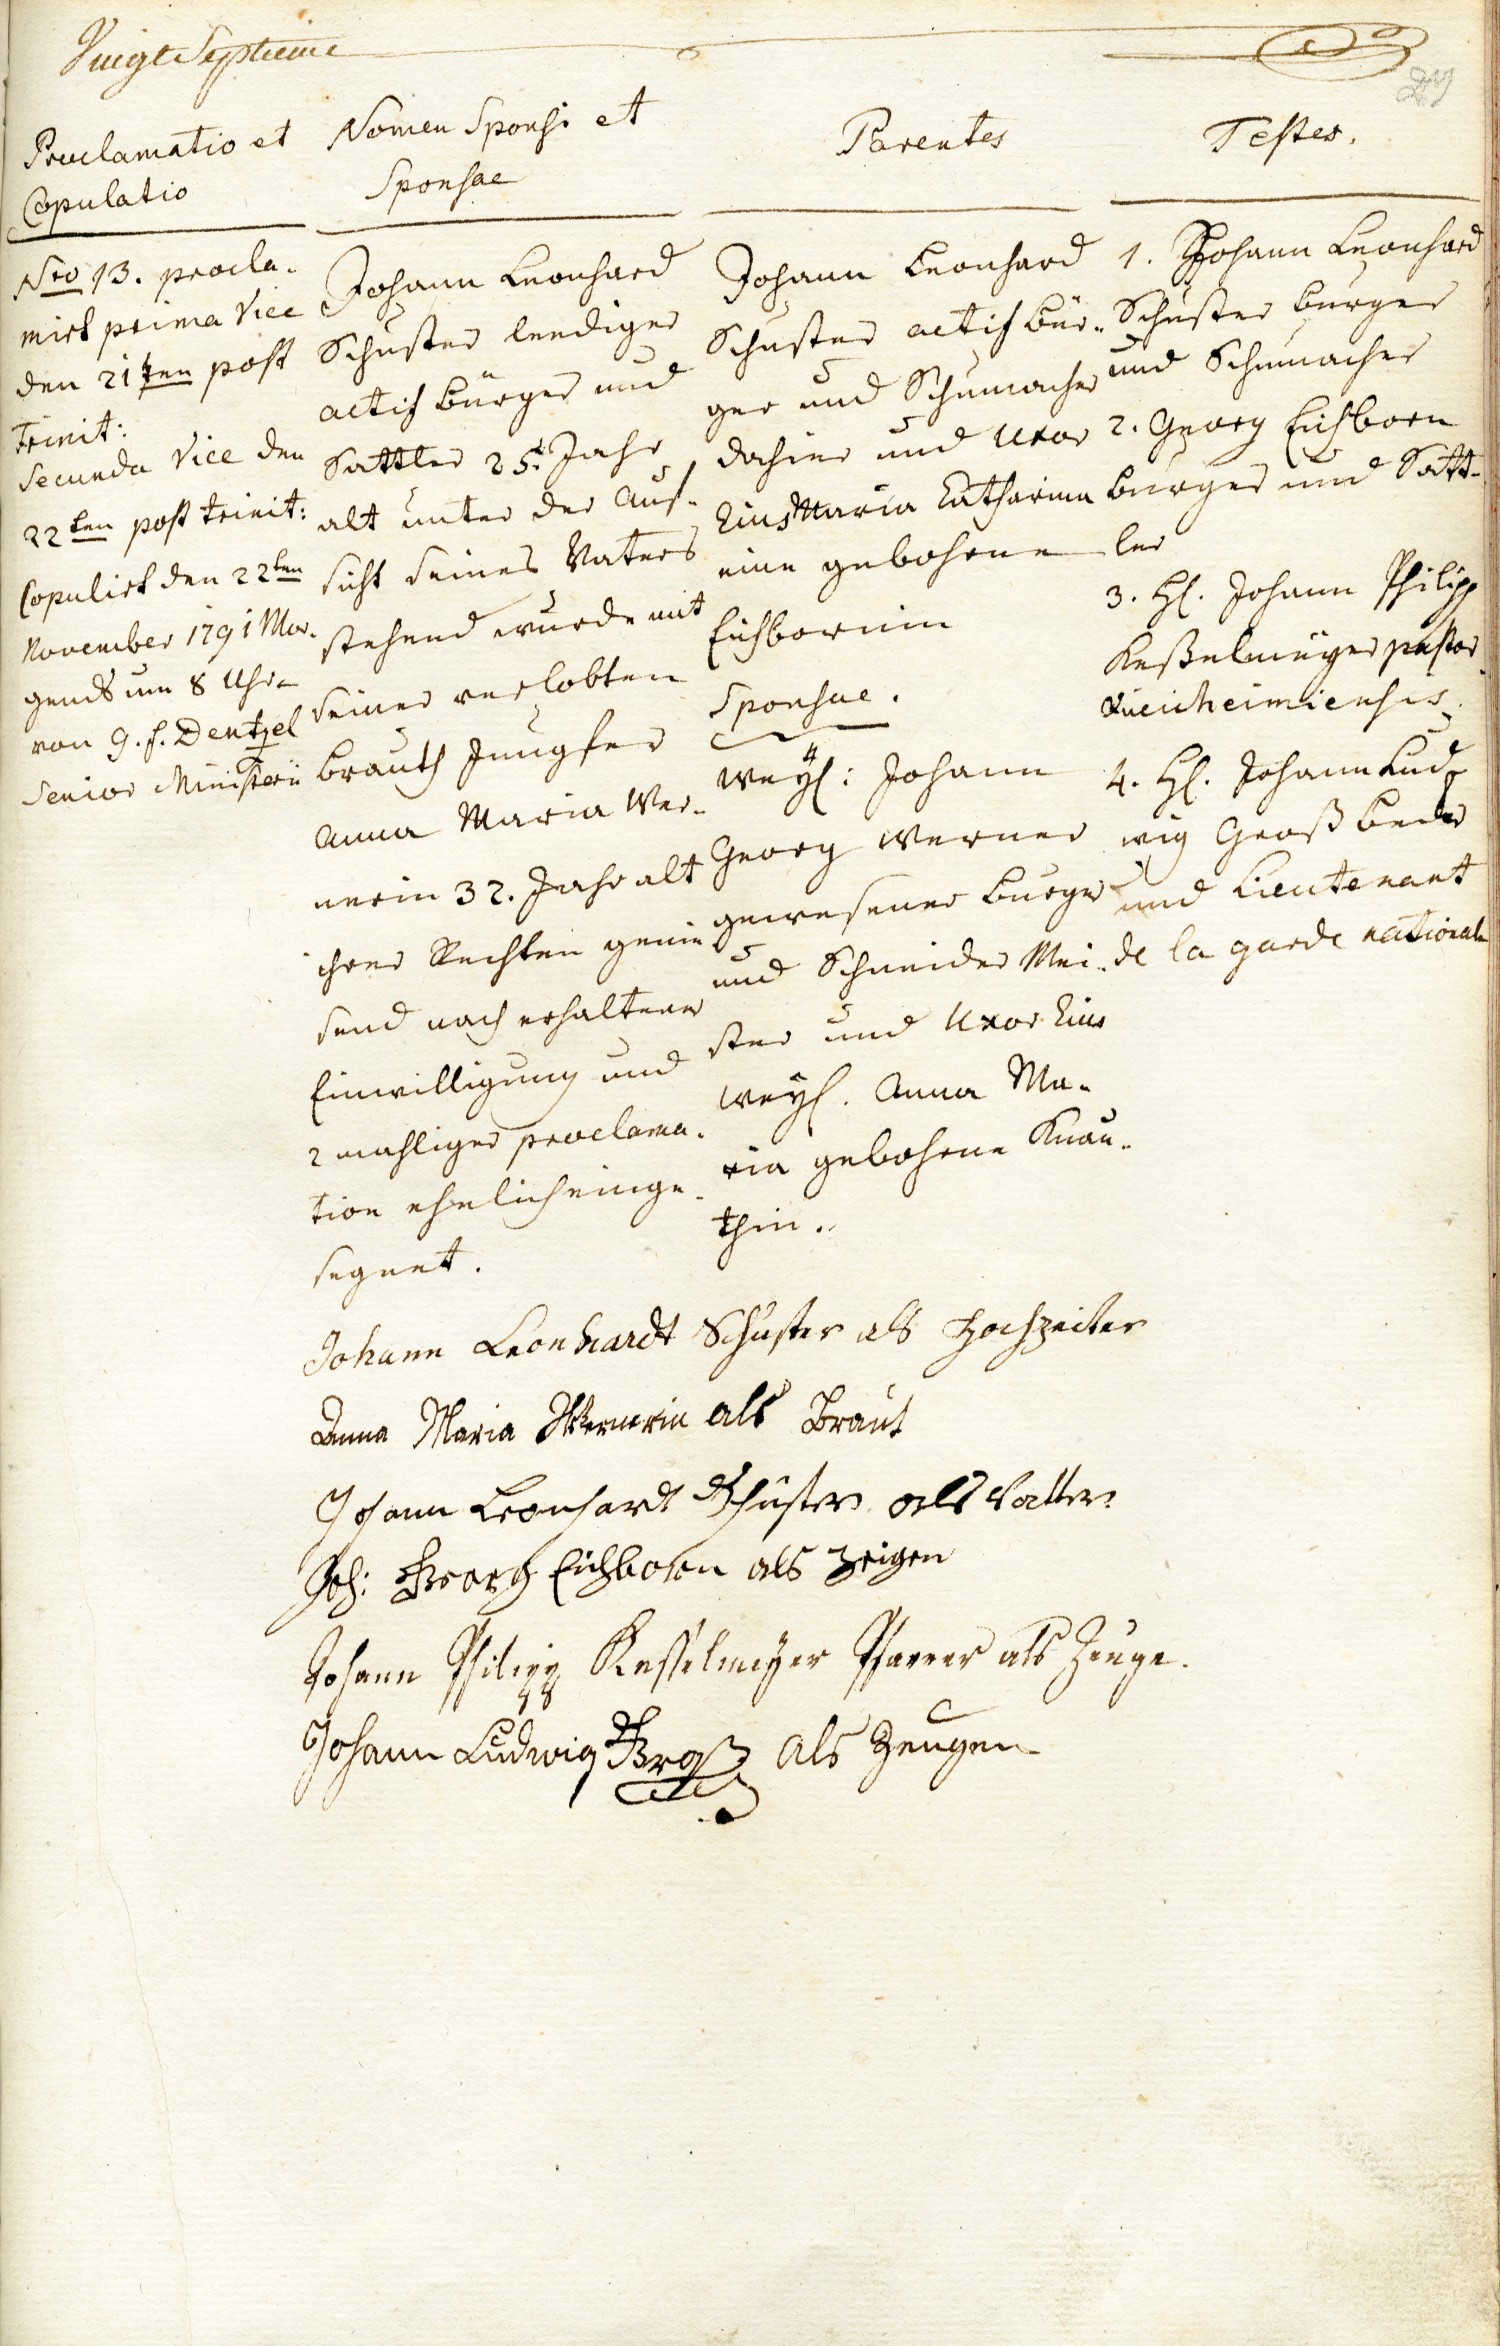 Vingt Septieme
27
Proclamatio et
Copulatio
Nro 13. procla-
mirt prima Vice
den 21ten post
Trinit:
Secunda Vice den
22ten post trinit:
Copulirt den 22ten
November 1791 Mor-
gends um 8 Uhr
von g. f. Dentzel
Senior Ministerii
Nomen Sponsi et
Sponsae
Johann Leonhard
Schuster leediger
actif bürger und
Sattler 25. Jahr
alt unter der Auf-
sicht seines Vaters
stehend wurde mit
seiner verlobten
brauth Jungfer
Anna Maria Wer-
nerin 32. Jahr alt
ihrer Rechten genie
send nach erhaltener
Einwilligung und
2 mahliger proclama-
tion ehelich einge-
segnet.
Parentes
Johann Leonhard
Schuster actif bür-
ger und Schumacher
dahier und Uxor
Eius Maria Catharina
eine gebohrne
Eichbornin
Sponsae.
weyl: Johann
Georg Werner
gewesener burger
und Schneider Mei-
ster und Uxor Eius
weyl. Anna Ma-
ria gebohrne Knau-
thin.
Testes.
1. Johann Leonhard
Schuster burger
und Schumacher
2. Georg Eichborn
burger und Satt-
ler
3. H. Johann Philipp
Keßelmeyer pastor
4. H. Johann Lud-
wig Groß
und Lieutenant
de la garde nationale
Johann Leonhardt Schuster als Hochzeiter
Anna Maria Wernerin als Braut
Johann Leonhardt Schuster als Vatter
Joh: Georg Eichborn als Zeigen
Johann Philipp Kesselmeyer Pfarrer als Zeuge.
Johann Ludwig Groß als Zeugen